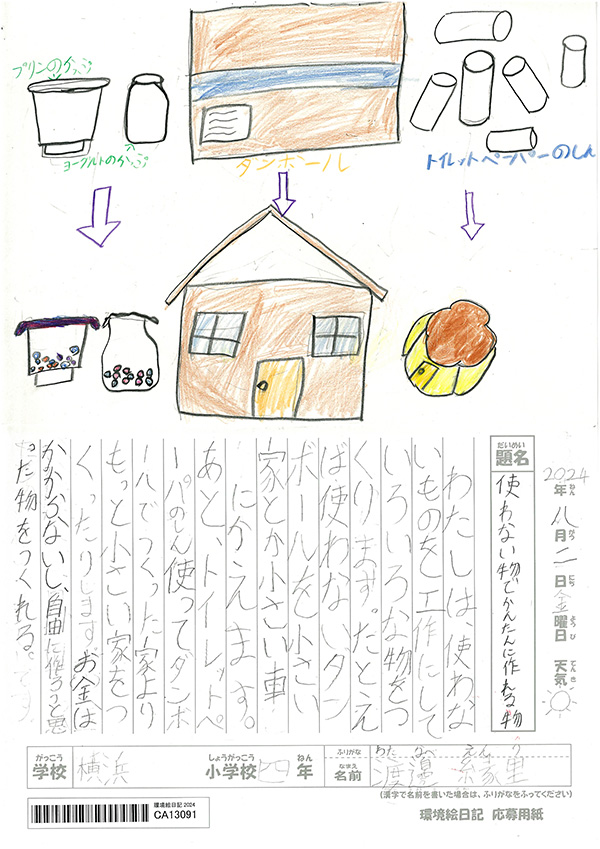 プリンのかっぷ
ヨーグルトのかっぷ
タンボール
トイレットペーパーのしん
2024年八月二日金曜日 天気
ねん がつ にち ようび てんき
だいめい
題名
使わない物でかんたんに作れる物
わたしは、使わな
いものを工作にして
いろいろな物をつ
くります。たとえ
ば使わないタン
ボールを小さい
家とか小さい車
にかえます。
あと、トイレットペ
ーパのしん使ってダンボ
ールでつくった家より
もっと小さい家をつ
くったりします。お金は
かからないし、自由に作ろうと思
った物をつくれる。
がっこう しょうがっこう ねん
学校 横浜 小学校 四年
ふりがな わたなべ
なまえ
名前 渡邉 里
(漢字で名前を書いた場合は、ふりがなをふってください)
環境絵日記 2024
CA13091
環境絵日記 応募用紙